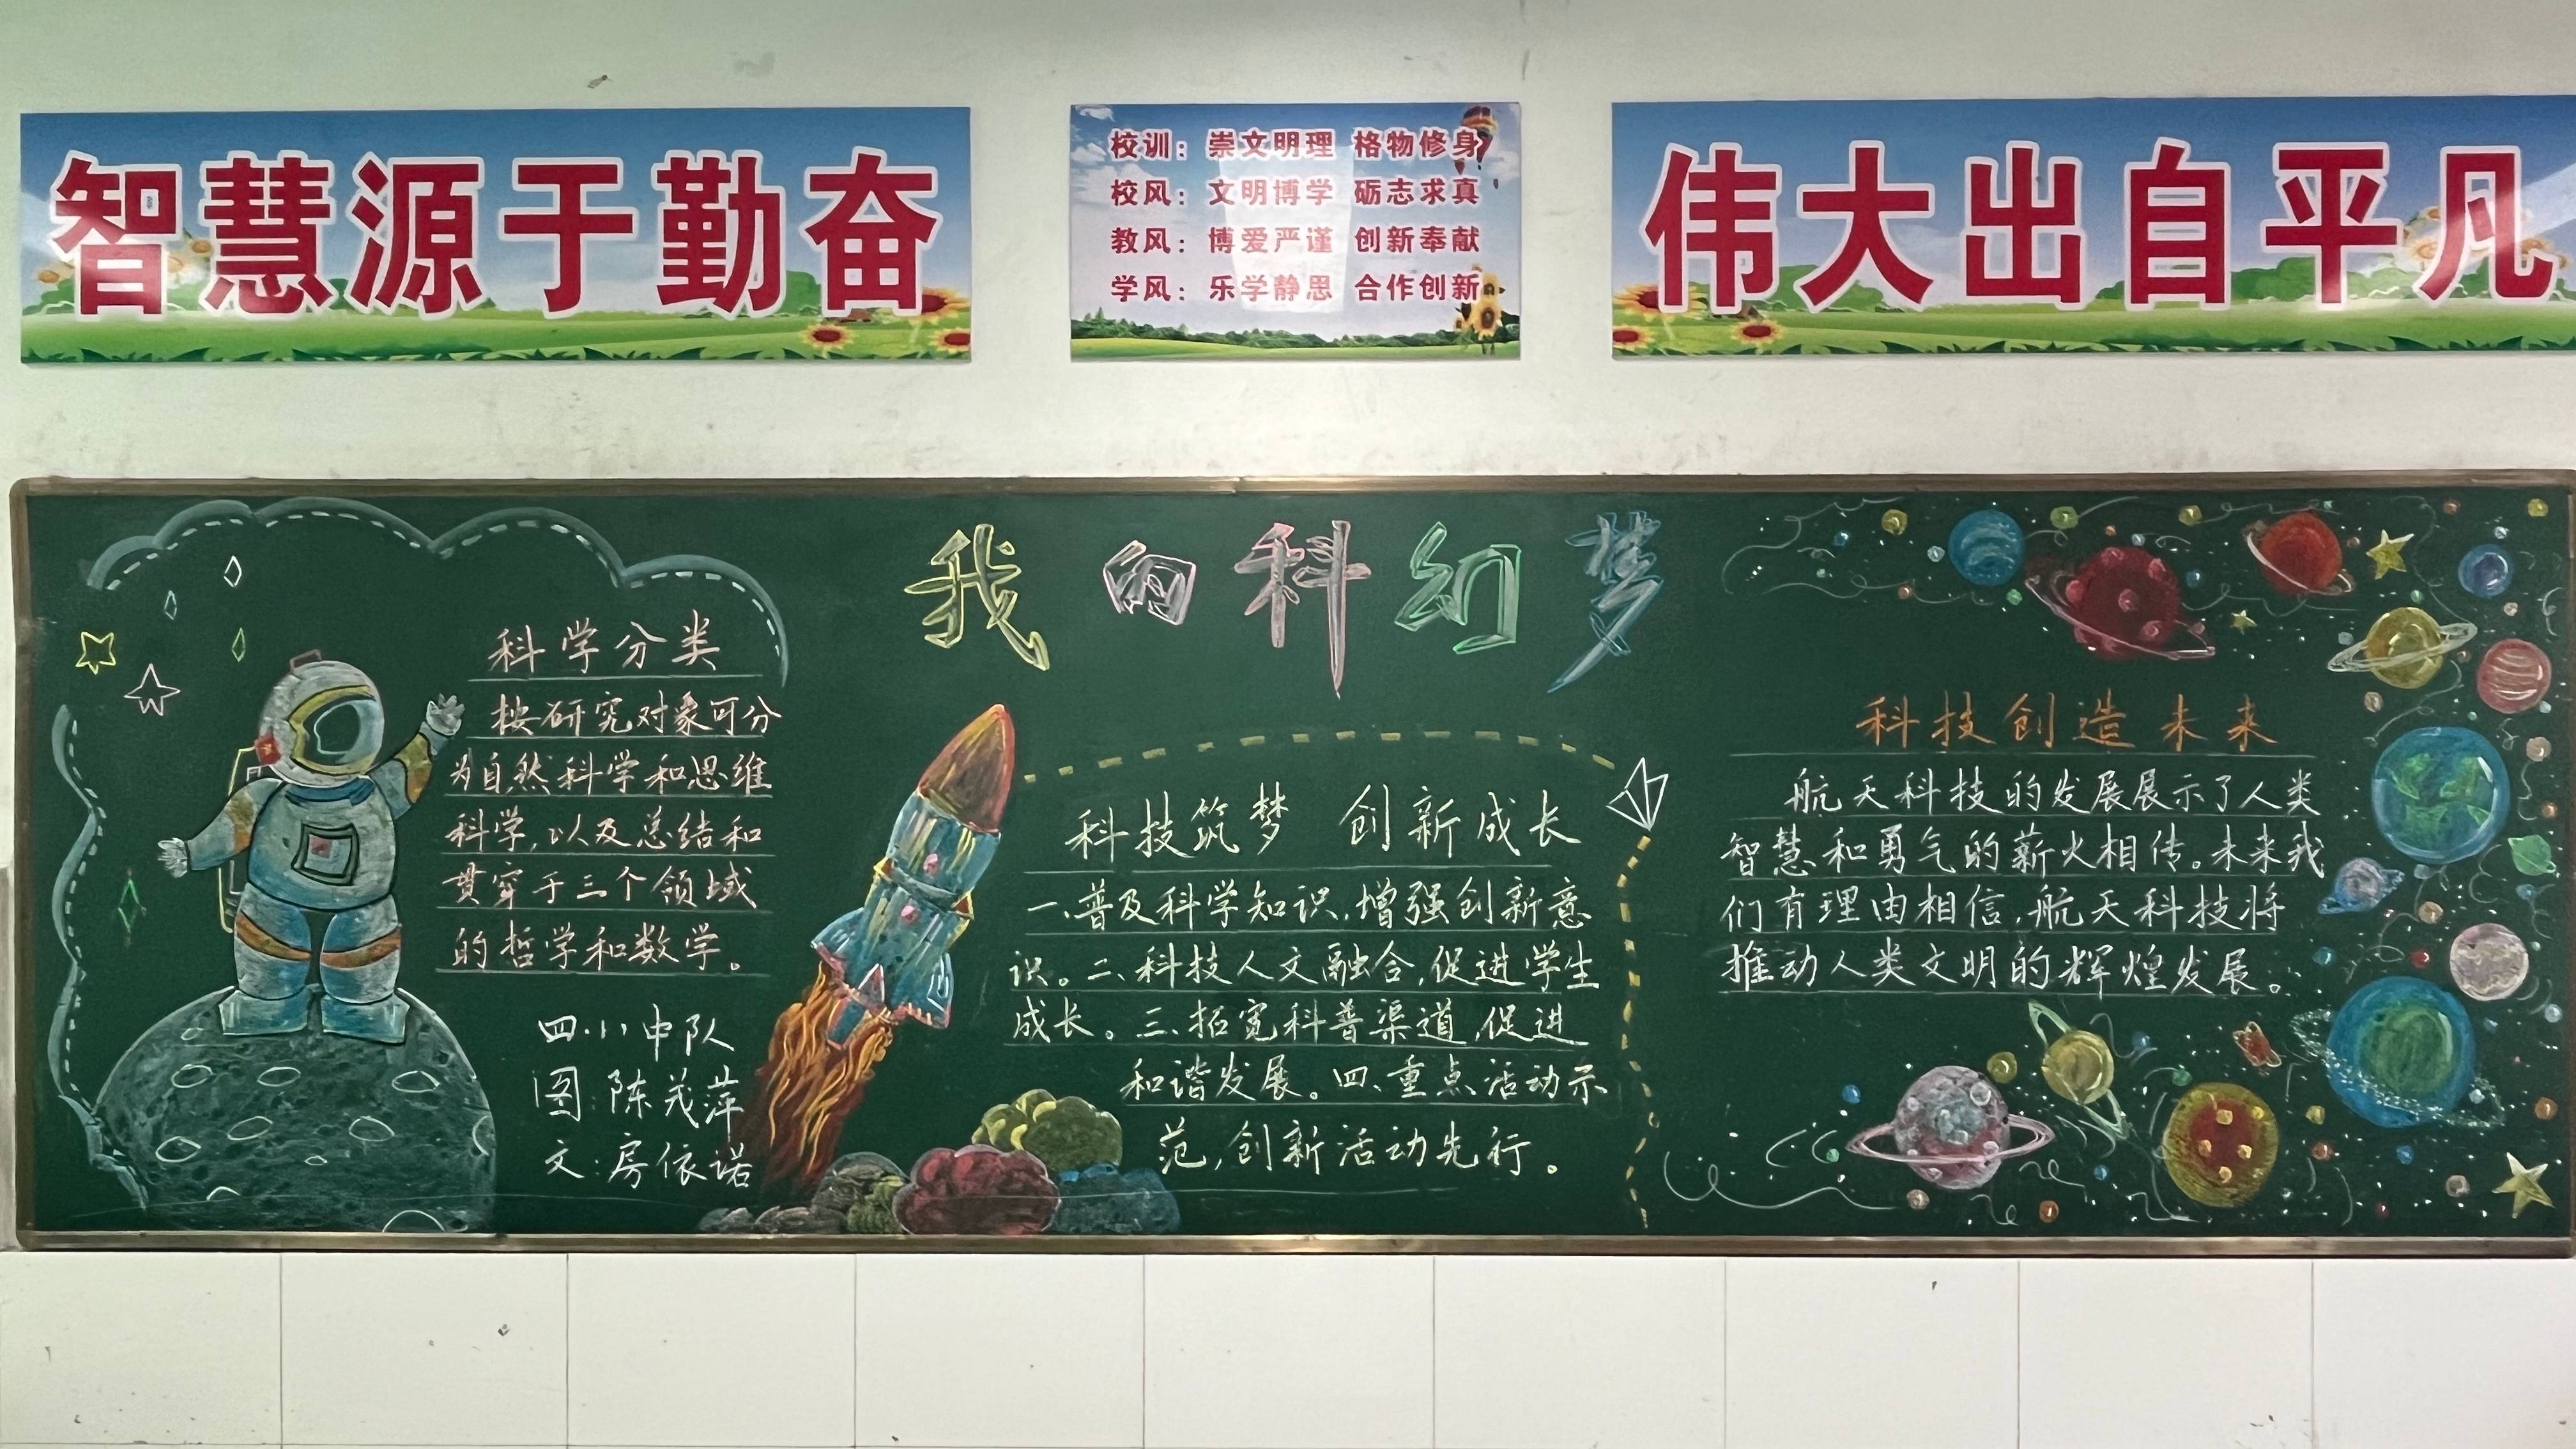 智慧源于勤奋
校训：崇文明理 格物修身
校风：文明博学 砺志求真
教风：博爱严谨 创新奉献
学风：乐学静思 合作创新
伟大出自平凡
我的科幻梦
科学分类
按研究对象可分
为自然科学和思维
科学,以及总结和
贯穿于三个领域
的哲学和数学。
四.11中队
图:陈茂萍
文:房依诺
科技筑梦 创新成长
一、普及科学知识,增强创新意
识。二、科技人文融合,促进学生
成长。三、拓宽科普渠道,促进
和谐发展。四、重点活动示
范,创新活动先行。
科技创造未来
航天科技的发展展示了人类
智慧和勇气的薪火相传。未来我
们有理由相信,航天科技将
推动人类文明的辉煌发展。